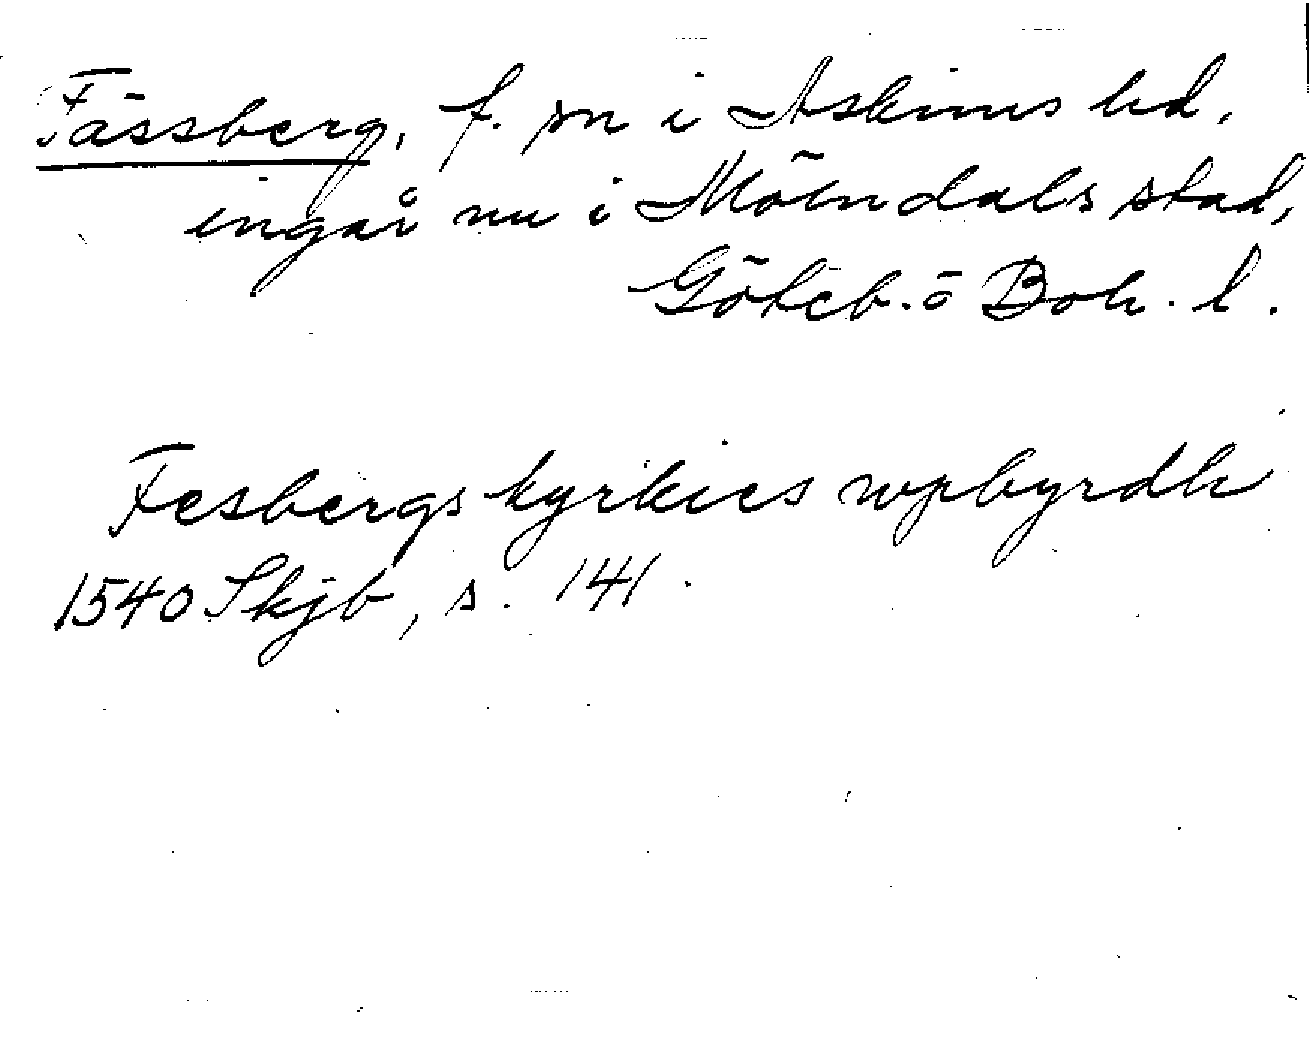 Fässberg, f. sn i Askims hd,
ingår nu i Mölndals stad,
Göteb. o Boh. l.
Fesbergs kyrkies wpbyrdh
1540 Skjb, s. 141.